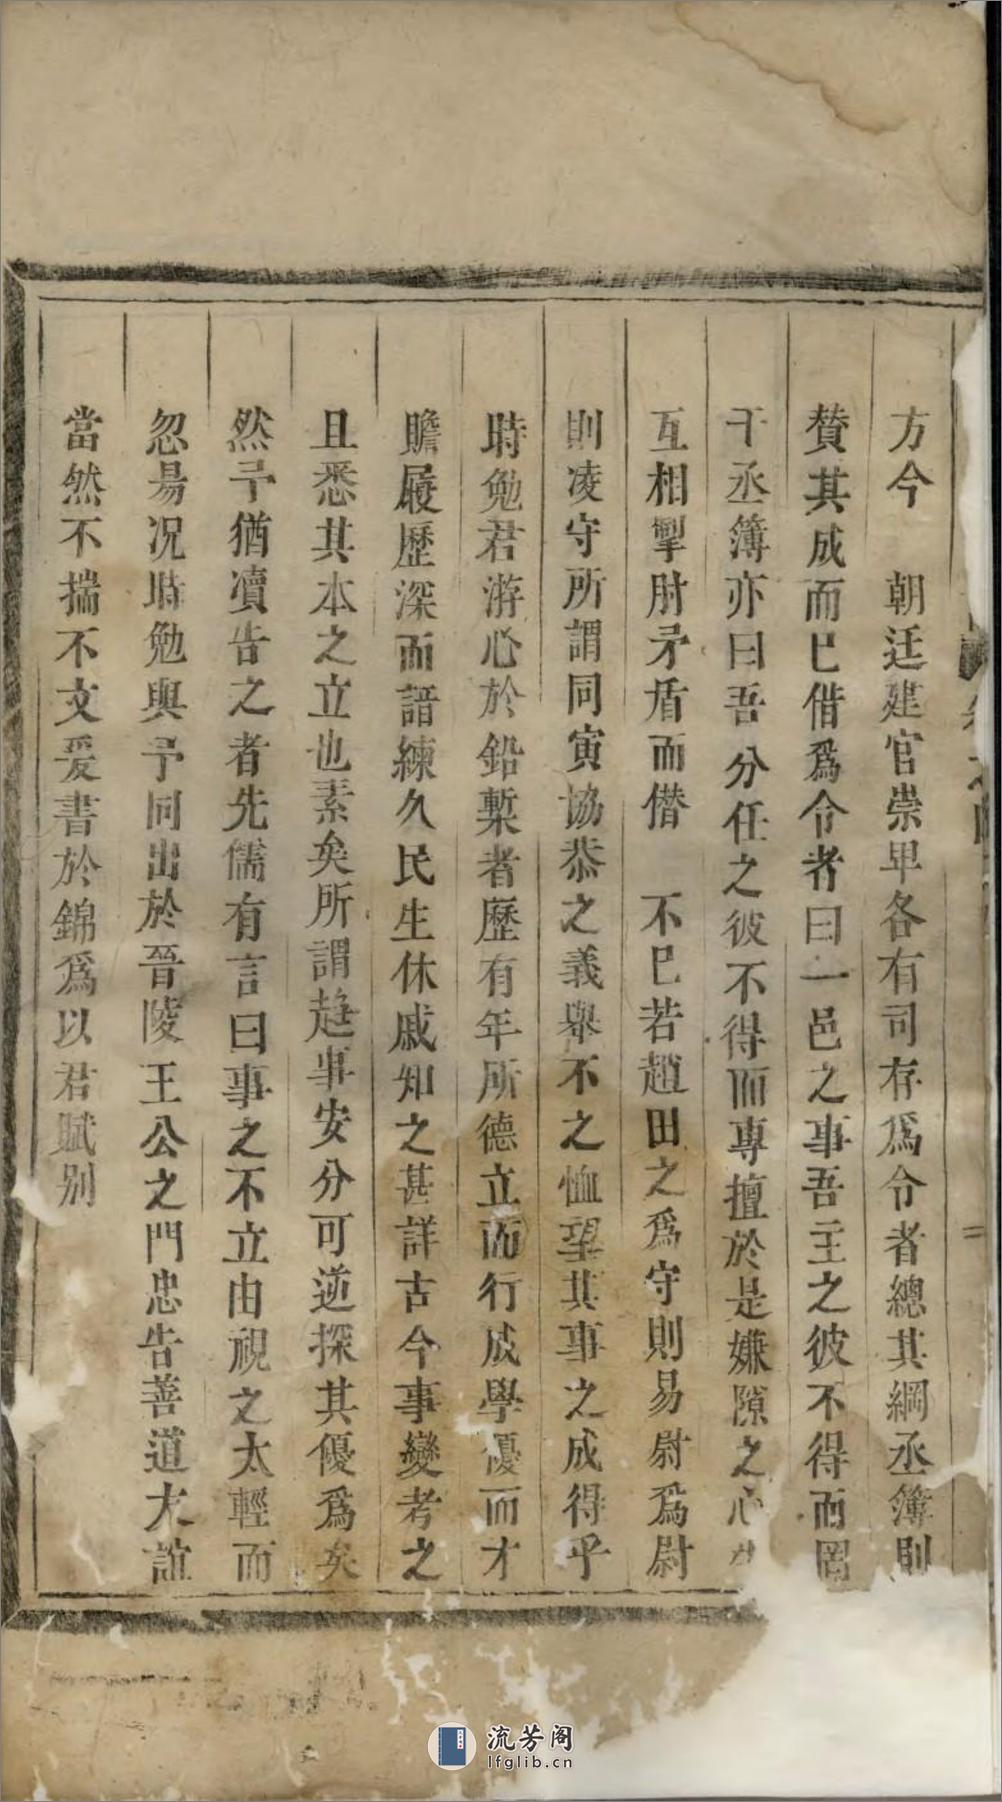 方今　朝廷建官崇卑各有司存爲令者總其綱丞簿則
賛其成而已借爲令者曰一邑之事吾主之彼不得而罔
干丞簿亦曰吾分任之彼不得而專擅於是嫌隙之心生
互相掣肘矛盾而僭　不已若趙田之爲守則易尉爲尉
則凌守所謂同寅協恭之義舉不之恤望其事之成得乎
時勉君游心於鉛槧者歷有年所德立而行成學優而才
贍履歷深而諳練久民生休戚知之甚詳古今事變考之
且悉其本之立也素矣所謂趨事安分可逆探其優爲矣
然予猶瀆告之者先儒有言曰事之不立由視之太輕而
忽易况時勉與予同出於晉陵王公之門忠告善道大誼
當然不揣不文爰書於錦爲以君賦别
流芳阁
lfglib.cn